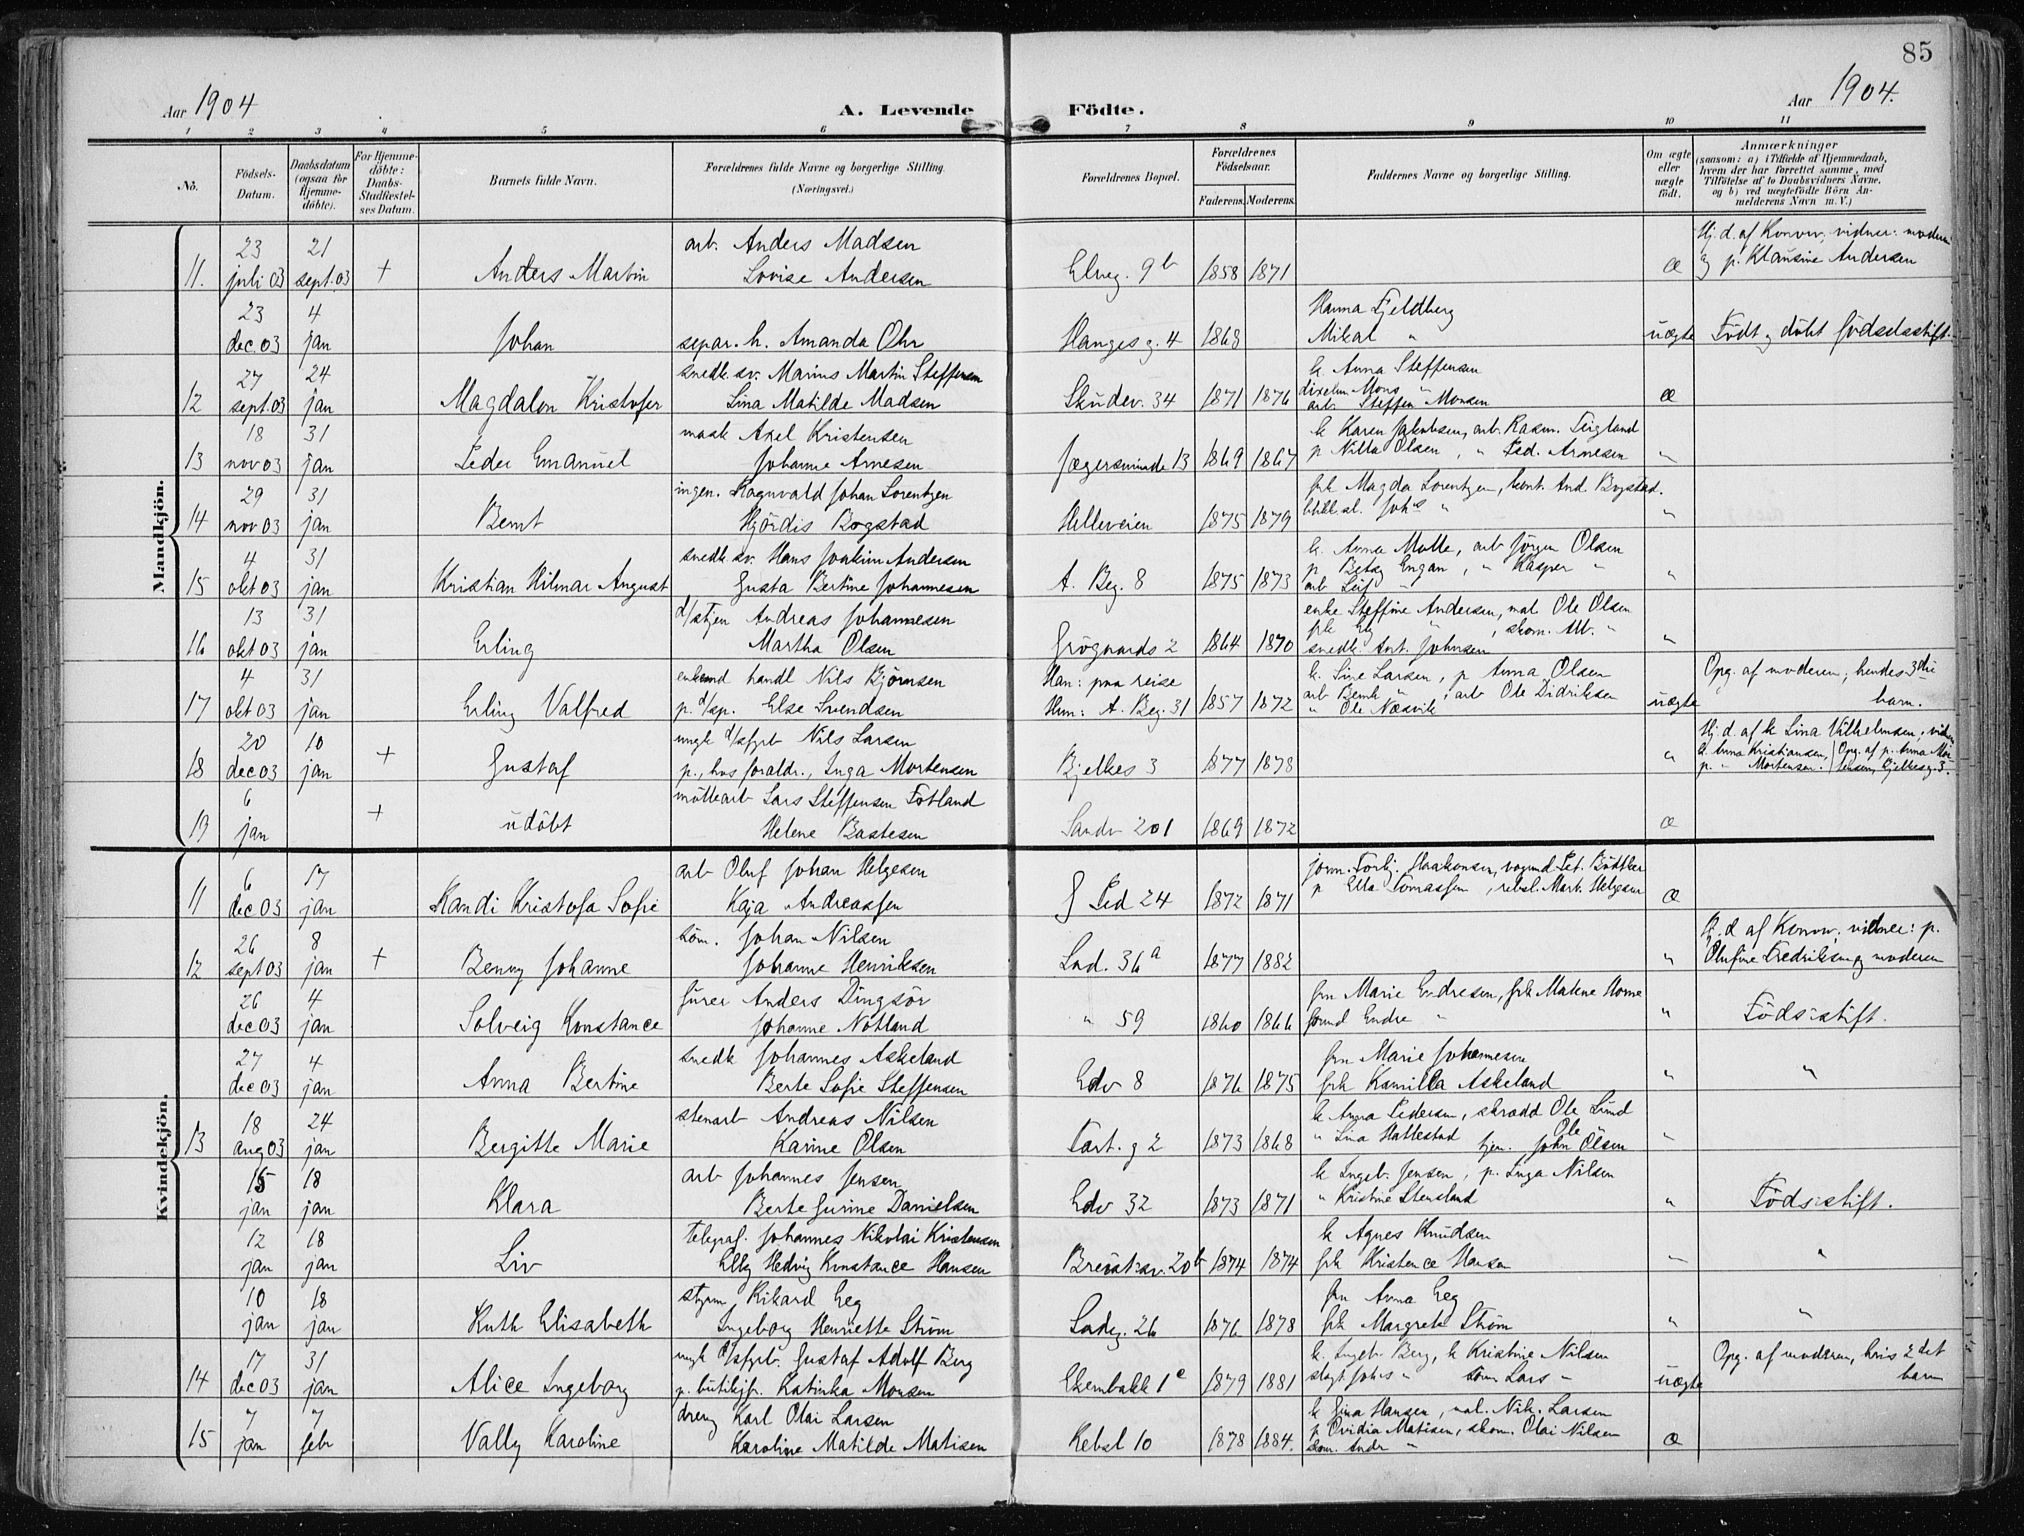 85
Aar 1904
A. Levende Födte.
Aar 1904.
1 2 3 4 5 6 7 8 9 10 11
No.
Födsels-Datum.
Daabsdatum (ogsaa for Hjemme-döbte).
For Hjemme-döbte: Daabs-Stadfæstel-ses Datum.
Barnets fulde Navn.
Forældrenes fulde Navne og borgerlige Stilling. (Næringsvei.)
Forældrenes Bopæl.
Forældrenes Födselsaar.
Faderens. Moderens.
Faddernes Navne og borgerlige Stilling.
Om ægte eller uægte födt.
Anmærkninger
(saasom: a) i Tilfælde af Hjemmedaab, hvem der har forrettet samme, med Tilföielse af to Daabsvidners Navne, og b) ved uægtefödte Börn Anmelderens Navn m. V.)
Mandkjön.
11. 23 juli 03 21 sept. 03 + Anders Martin
arb. Anders Madsen
Lovise Andersen
Elveg. 9b 1858 1871 æ
Hj. d. af Konow, vidner: moderen
og p. Klausine Andersen
23 dec. 03 4 jan Johan
separ. h. Amanda Ohr
Hanges g. 4 1868
Hanna Fjeldberg
Mikal "
uægte Født og döbt födselsstift.
12 27 sept. 03 24 jan Magdalon Kristofer
snedk. sv. Marius Martin Steffensen
Lina Matilde Madsen
Skudev. 34 1871 1876
k. Anna Steffensen
Mons "
arb. Steffen Monsen
æ
13 18 nov 03 31 jan Peder Emanuel
mask Axel Kristensen
Johanne Arnesen
Jægersminde 13 1869 1867
k Karen Jakobsen, arb. Rasm. Tegland
p Nilla Olsen, " Ped. Arnesen "
14 29 nov 03 31 jan Bernt
ingen. Ragnvald Johan Lorentzen
Hjördis Bogstad
Helleveien 1875 1879
frk Magda Lorentzen, kont. And. Bogstad.
Johs " "
15 4 okt 03 31 jan Kristian Hilmar August
snedk sv. Hans Joakim Andersen
Gusta Bertine Johannesen
A. Beg. 8 1875 1873
k. Anna Molle, arb Jörgen Olsen
p Betsy Engan, " Kasper "
arb Leif " "
16 13 okt 03 31 jan Erling
d/stjen Andreas Johannesen
Martha Olsen
Grögaards 2 1864 1870
enke Steffine Andersen, mat Ole Olsen
frk Ely ", skom. "
snedk. Ant. Johnsen "
17 4 okt 03 31 jan Erling Valfred
enkemd handl Nils Bjørnsen
p. d/sp. Else Svendsen
Han: paa reise
Hun: A. Beg. 31 1857 1872
k. Sine Larsen, p Anna Olsen
arb Bernh ", arb Ole Didriksen
" Ole Næsvik
uægte
Opg. af moderen, hendes 3die
barn.
18 20 dec 03 10 jan + Gustaf
ungk d/sfyrb Nils Larsen
p., hos foraldr., Inga Mortensen
Bjelkes 3 1877 1878 "
Hj. d. af k Lina Vilhelmsen, vidn
k. Anna Kristiansen, Opg. af p. Anna Mor
p. " Mortensen. tensen, Bjelkesg. 3.
19 6 jan + udöbt
möllearb Lars Steffensen Fotland
Helene Bastesen
Sandv 201 1869 1872 æ
Kvindekjön.
11 6 dec 03 17 jan Randi Kristofa Sofie
arb Oluf Johan Helgesen
Kaja Andreassen
G Ped 24 1872 1871
jomfr. Torbj. Haakonsen, vognmd Pet. Bødtker
p Ella Tomassen, rebsl. Mart. Helgesen
æ
12 26 sept 03 8 jan + Benny Johanne
söm. Johan Nilsen
Johanne Henriksen
Lad. 36a 1877 1882 "
Hj. d af Konow, vidner: p.
Olufine Fredriksen og moderen
26 dec 03 4 jan Solveig Konstance
fürer Anders Dingsör
Johanne Notland
" 59 1860 1866
fru Marie Endresen, frk Malene Horne
Endre " "
Föds:stift.
27 dec 03 4 jan Anna Bertine
snedk Johannes Askeland
Berte Sofie Steffensen
Edv 8 1876 1875
fru Marie Johannesen
frk Kamilla Askeland " "
13 18 aug 03 24 jan Bergitte Marie
stenarb Andreas Nilsen
Karine Olsen
Tart. g 2 1873 1868
k Anna Pedersen, skrædd Ole Lund
" Lina Hattestad tjen. John Ole Olsen "
15 jan 18 jan Klara
arb Johannes Jensen
Berte Gurine Danielsen
Edv 32 1873 1871
k Ingeb. Jensen, p. Inga Nilsen
" Kristine Stensland "
Föds:stift.
12 jan 18 jan Liv
telegraf. Johannes Nikolai Kristensen
Elly Hedvig Konstance Hansen
Breistsv. 20b 1874 1874
k Agnes Knudsen
frk Kristence Hansen " "
10 jan 18 jan Ruth Elisabeth
styrm Rikard Eeg
Ingeborg Henriette Strøm
Ladeg. 26 1876 1878
fru Anna Eeg
frk Margrete Strøm " "
14 17 dec 03 31 jan Alice Ingeborg
ungk d/sfyrb. Gustaf Adolf Berg
p. butikjfr. Katinka Monsen
Ekernbakk 1c 1879 1881
k. Ingeb. Berg, k Kristine Nilsen
slagt Johs " söm Lars "
uægte
Opg. af moderen, hvis 2det
barn
15 7 jan 7 febr Vally Karoline
dreng Karl Olai Larsen
Karoline Matilde Matisen
Rebsl 10 1878 1884.
k. Gina Hansen, mal. Nik. Larsen
p Ovidia Matisen, skom. Olai Nilsen
skom. Andr "
æ